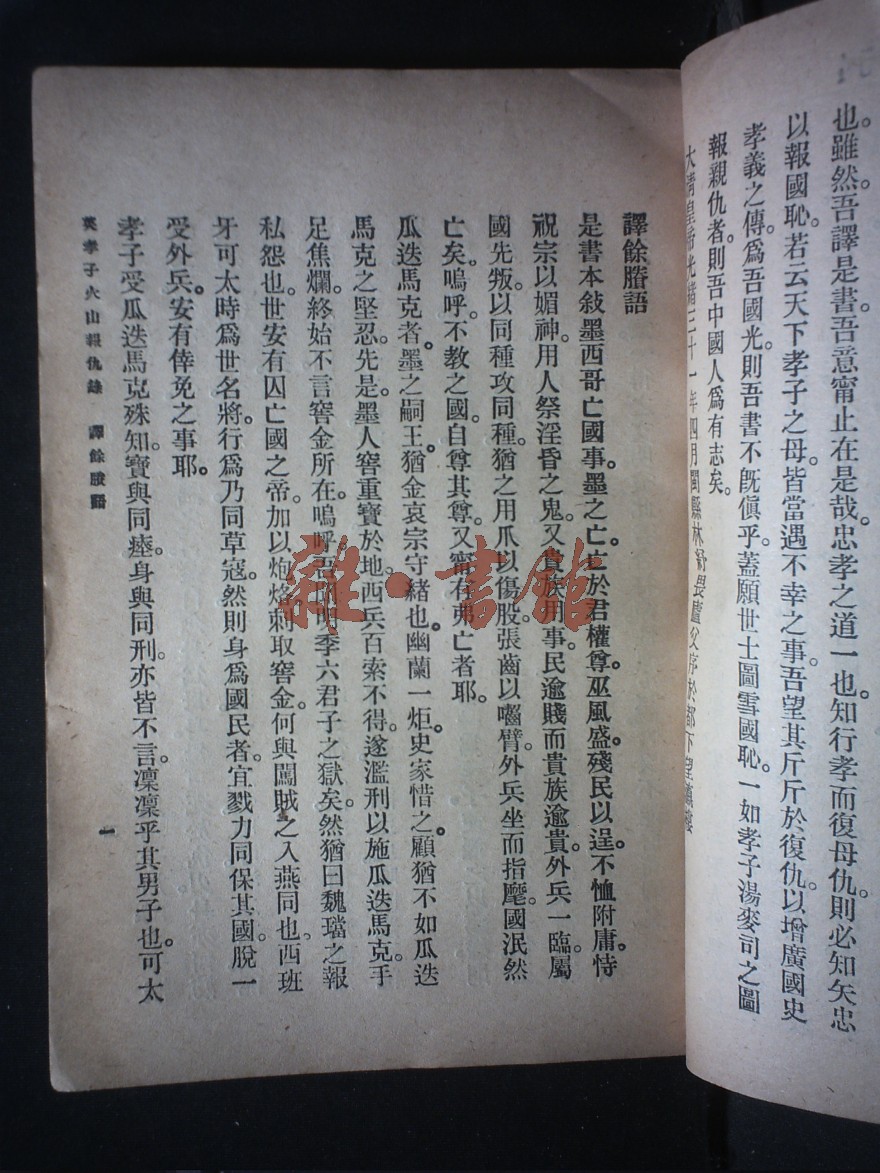 也。雖然。吾譯是書。吾意甯止在是哉。忠孝之道一也。知行孝而復母仇。則必知矢忠
以報國恥。若云天下孝子之母。皆當遇不幸之事。吾望其斤斤於復仇。以增廣國史
孝義之傳。爲吾國光。則吾書不既傎乎。蓋願世士圖雪國恥。一如孝子湯麥司之圖
報親仇者。則吾中國人爲有志矣。
大清皇帝光緒三十一年四月閩縣林紓畏廬父序於都下望瀛樓
譯餘賸語
是書本敍墨西哥亡國事。墨之亡。亡於君權尊。巫風盛。殘民以逞。不恤附庸。恃
祝宗以媚神。用人祭淫昏之鬼。又貴族用事。民逾賤而貴族逾貴。外兵一臨。屬
國先叛。以同種攻同種。猶之用爪以傷股。張齒以囓臂。外兵坐而指麾。國泯然
亡矣。嗚呼。不教之國。自尊其尊。又甯有弗亡者耶。
瓜迭馬克者。墨之嗣王。猶金哀宗守緒也。幽蘭一炬。史家惜之。顧猶不如瓜迭
馬克之堅忍。先是。墨人窖重寶於地。西兵百索不得。遂濫刑以施瓜迭馬克。手
足焦爛。終始不言窖金所在。嗚呼。吾國明季六君子之獄矣。然猶曰魏璫之報
私怨也。世安有囚亡國之帝。加以炮烙。刺取窖金。何與闖賊之入燕同也。西班
牙可太時爲世名將。行爲乃同草寇。然則身爲國民者。宜戮力同保其國。脫一
受外兵。安有倖免之事耶。
孝子受瓜迭馬克殊知。寶與同瘞。身與同刑。亦皆不言。凜凜乎其男子也。可太
英孝子火山報仇錄 譯餘賸語
一
雜·書館